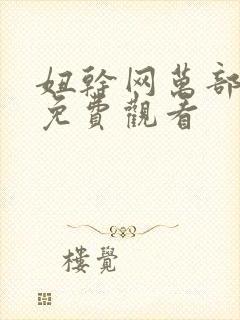 妞幹网萬部
免費觀看
樓覺